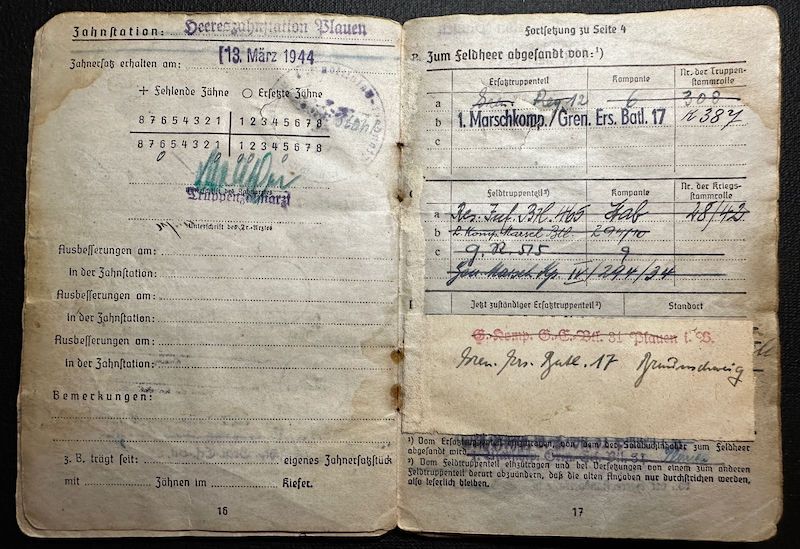 Zahnstation: Heereszahnstation Plauen
[13. März 1944
Zahnersatz erhalten am:
+ Fehlende Zähne ○ Ersetzte Zähne
8 7 6 5 4 3 2 1 | 1 2 3 4 5 6 7 8
8 7 6 5 4 3 2 1 | 1 2 3 4 5 6 7 8
Truppenzahnarzt
Unterschrift des Tr.-Arztes
Ausbesserungen am:
in der Zahnstation:
Ausbesserungen am:
in der Zahnstation:
Ausbesserungen am:
in der Zahnstation:
Bemerkungen:
z. B. trägt seit: eigenes Zahnersatzstück
mit Zähnen im Kiefer.
16
Fortsetzung zu Seite 4
B. Zum Feldheer abgesandt von:¹)
Ersatztruppenteil
Kompanie
Nr. der Truppen-
stammrolle
a
Reg. 12
6
308
b
1. Marschkomp./Gren. Ers. Batl. 17
387
c
Feldtruppenteil²)
Kompanie
Nr. der Kriegs-
stammrolle
a
Res. Inf. Btl. 465
Stab
28/42
b
294/10
c
g. R. 515
9
IV/294/34
Jetzt zuständiger Ersatztruppenteil²)
Standort
Plauen i. V.
Gren. Ers. Batl. 17 Braunschweig
¹) Vom Ersatztruppenteil einzutragen, von dem der Soldbuchinhaber zum Feldheer
abgesandt wird.
²) Vom Feldtruppenteil einzutragen und bei Versetzungen von einem zum anderen
Feldtruppenteil derart abzuändern, daß die alten Angaben nur durchstrichen werden,
also leserlich bleiben.
17